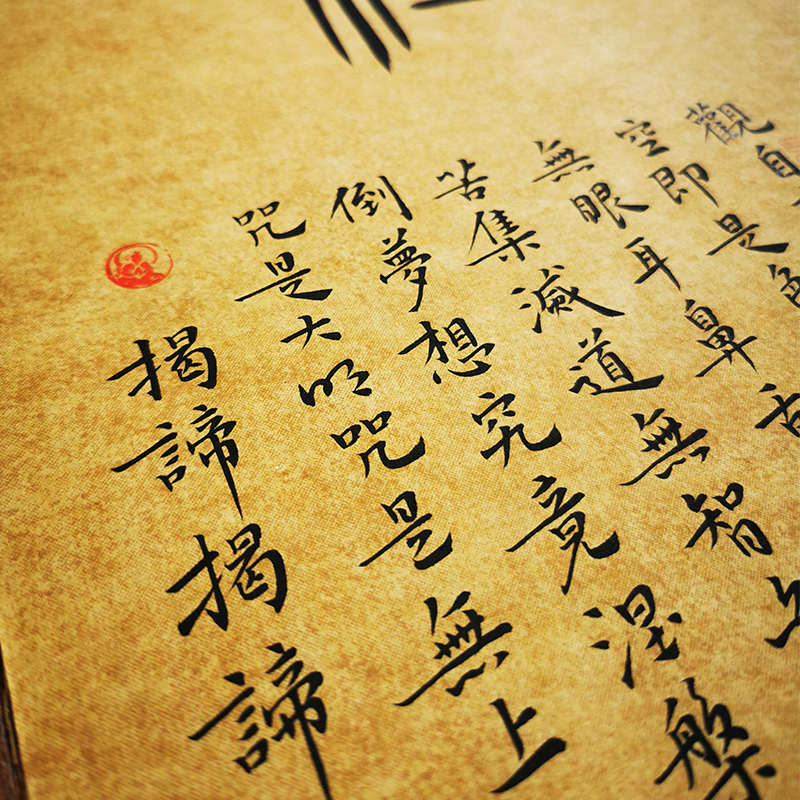 觀自
空即是色
無眼耳鼻舌
苦集滅道無智
倒夢想究竟涅槃
咒是大明咒是無上
揭諦揭諦